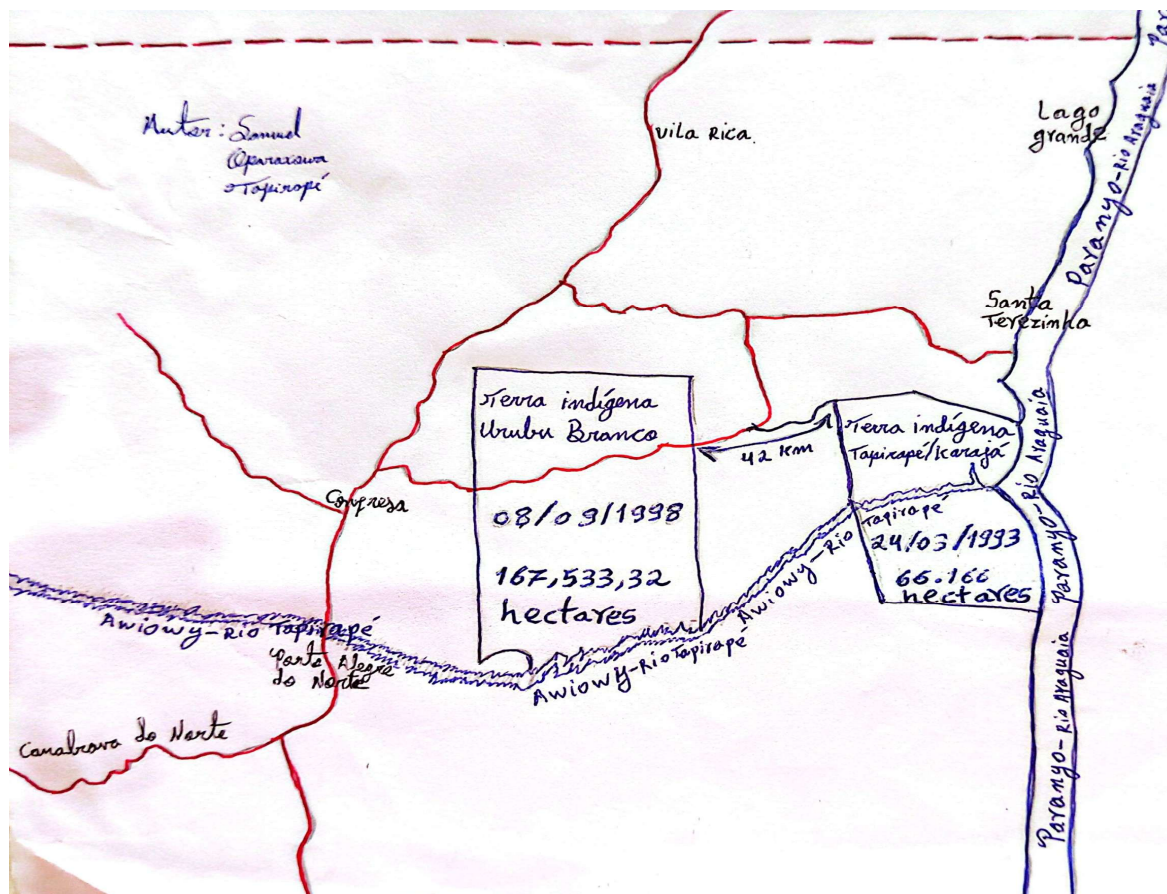 Autor: Samuel
Oparaxowa
Tapirapé
Vila Rica.
Lago
grande
Paranyo-Rio Araguaia
Santa
Terezinha
Terra indígena
Urubu Branco
08/09/1998
167,533,32
hectares
42 km
Terra indígena
Tapirapé/Karajá
24/03/1993
66.166
hectares
Confresa
Awiowy-Rio Tapirapé
Porto Alegre
do Norte
Awiowy-Rio Tapirapé
Awiowy-Rio Tapirapé
Canabrava do Norte
Paranyo-Rio Araguaia
Paranyo-Rio Araguaia